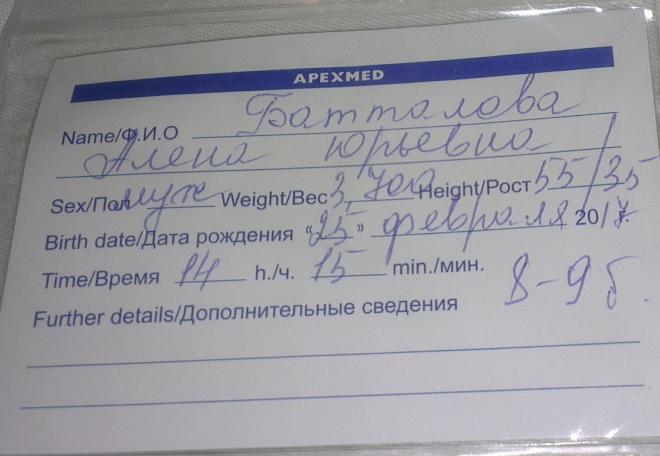 APEXMED
Name/Ф.И.О Батталова
Алена Юрьевна
Sex/Пол муж Weight/Вес 3,700 Height/Рост 55/35
Birth date/Дата рождения "25" февраля 2017.
Time/Время 14 h./ч. 15 min./мин.
Further details/Дополнительные сведения 8-9 б.